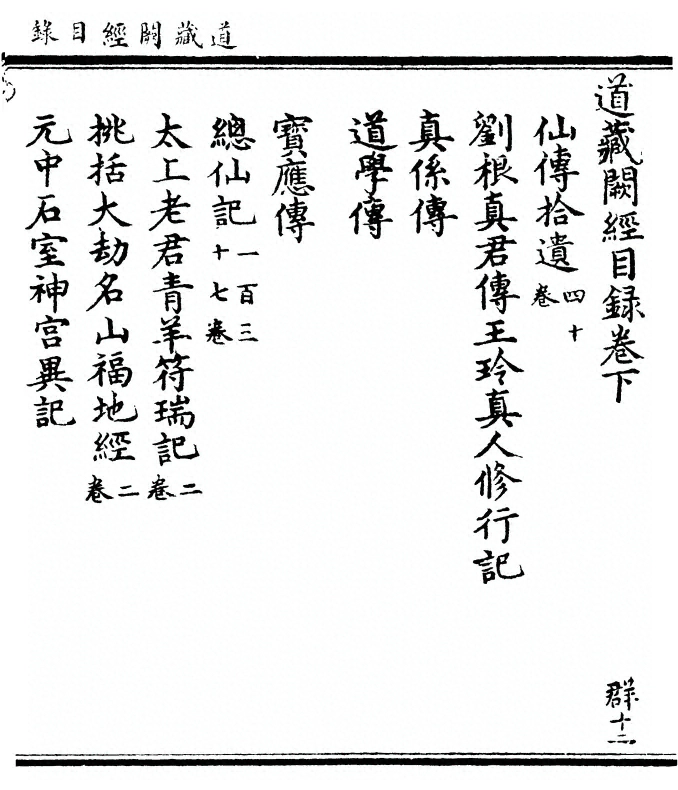 道藏闕經目錄
道藏闕經目録卷下
群十二
仙傳拾遺四十卷
劉根真君傳王玲真人修行記
真係傳
道學傳
寶應傳
總仙記一百三十七卷
太上老君青羊符瑞記二卷
挑括大劫名山福地經二卷
元中石室神宮異記